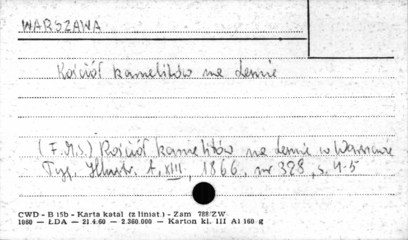 WARSZAWA
Kościół karmelitów na Lesznie
(F.M.S.) Kościół karmelitów na Lesznie w Warszawie
Tyg. Illustr. t. XIII, 1866, nr 328, s. 4-5
CWD - B 15b - Karta katal (z liniat.) - Zam 788/ZW
1060 — ŁDA — 21.4.60 — 2.360.000 — Karton kl. III A1 160 g